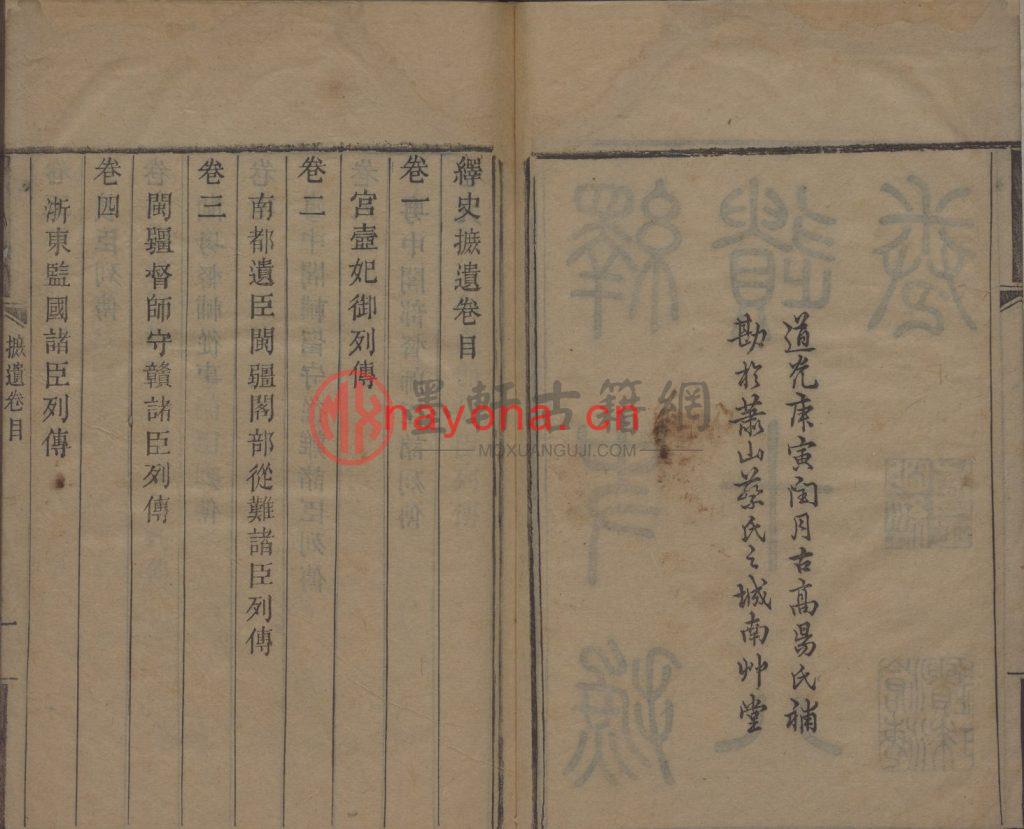 道光庚寅閏月古高昜氏補
勘於蕭山蔡氏之城南艸堂
繹史摭遺卷目
卷一
宮壼妃御列傳
卷二
南都遺臣閩疆閣部從難諸臣列傳
卷三
閩疆督師守贛諸臣列傳
卷四
浙東監國諸臣列傳
摭遺卷目
一
墨軒古籍網
nayona.cn
MOXUANGUJI.COM